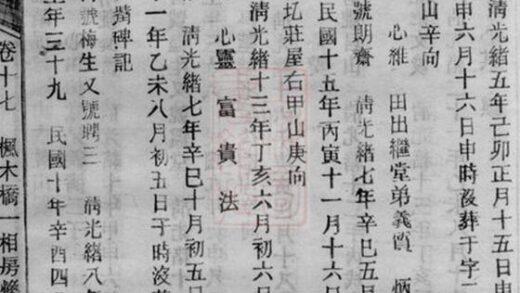 清光緒五年己卯正月十五日申
申六月十六日申時沒葬于字
山辛向
心維 田出繼堂弟義質 炳
號朗齋 清光緒七年辛巳五
民國十五年丙寅十一月十六
圠莊屋右甲山庚向
清光緒十三年丁亥六月初六
心靈 富 貴 法
清光緒七年辛巳十月初五日
一年乙未八月初五日子時沒
碑記
號梅生又號聘三 清光緒八
年三十九 民國十年辛酉四
卷十七 楓木橋一相房